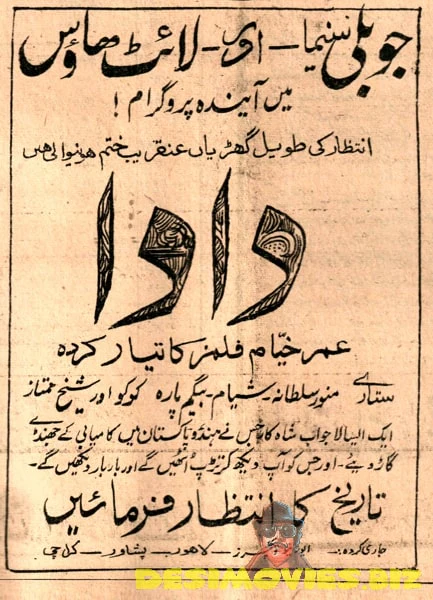 جوبلی سنیما - اور - لائٹ ھاؤس
میں آیندہ پروگرام !
انتظار کی طویل گھڑیاں عنقریب ختم ہونیوالی ہیں
دادا
عمر خیّام فلمز کا تیار کردہ
ستارے منور سلطانہ - شیام - بیگم پارہ کوکو اور شیخ ممتاز
ایک ایسا لاجواب شاہکار جس نے ہندو پاکستان میں کامیابی کے جھنڈے
گاڑ دیئے - اور جس کو آپ دیکھ کر تڑپ اٹھیں گے اور بار بار دیکھیں گے -
تاریخ کا انتظار فرمائیں
جاری کردہ :- پکچرز - لاھور - پشاور - کراچی
DESIMOVIES.BIZ